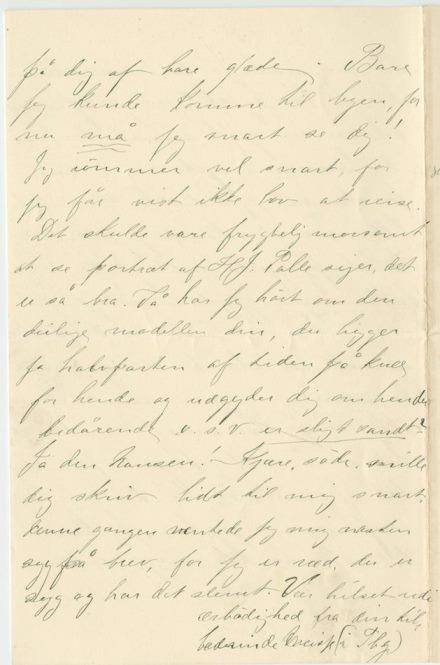 på dig af bare glæde. Bare
jeg kunde komme til byen, for
nu må jeg snart se dig!
Jeg römmer vel snart, for
jeg får vist ikke lov at reise.
Det skulde være frygtelig morsomt
at se portræt af H.J. Palle siger, det
er så bra. Så har jeg hört om den
deilige modellen din, du ligger
jo halvparten af tiden på knæ
for hende og udgyder dig om hendes
bedårende o.s.v. er sligt sandt?
Ja den Nansen! Kjære, söde, snille
dig skriv lidt til mig snart.
denne gangen ventede jeg mig næsten
syg på brev, for jeg er ræd, du er
syg og har det slemt. Vær hilset udi
ærbödighed fra din